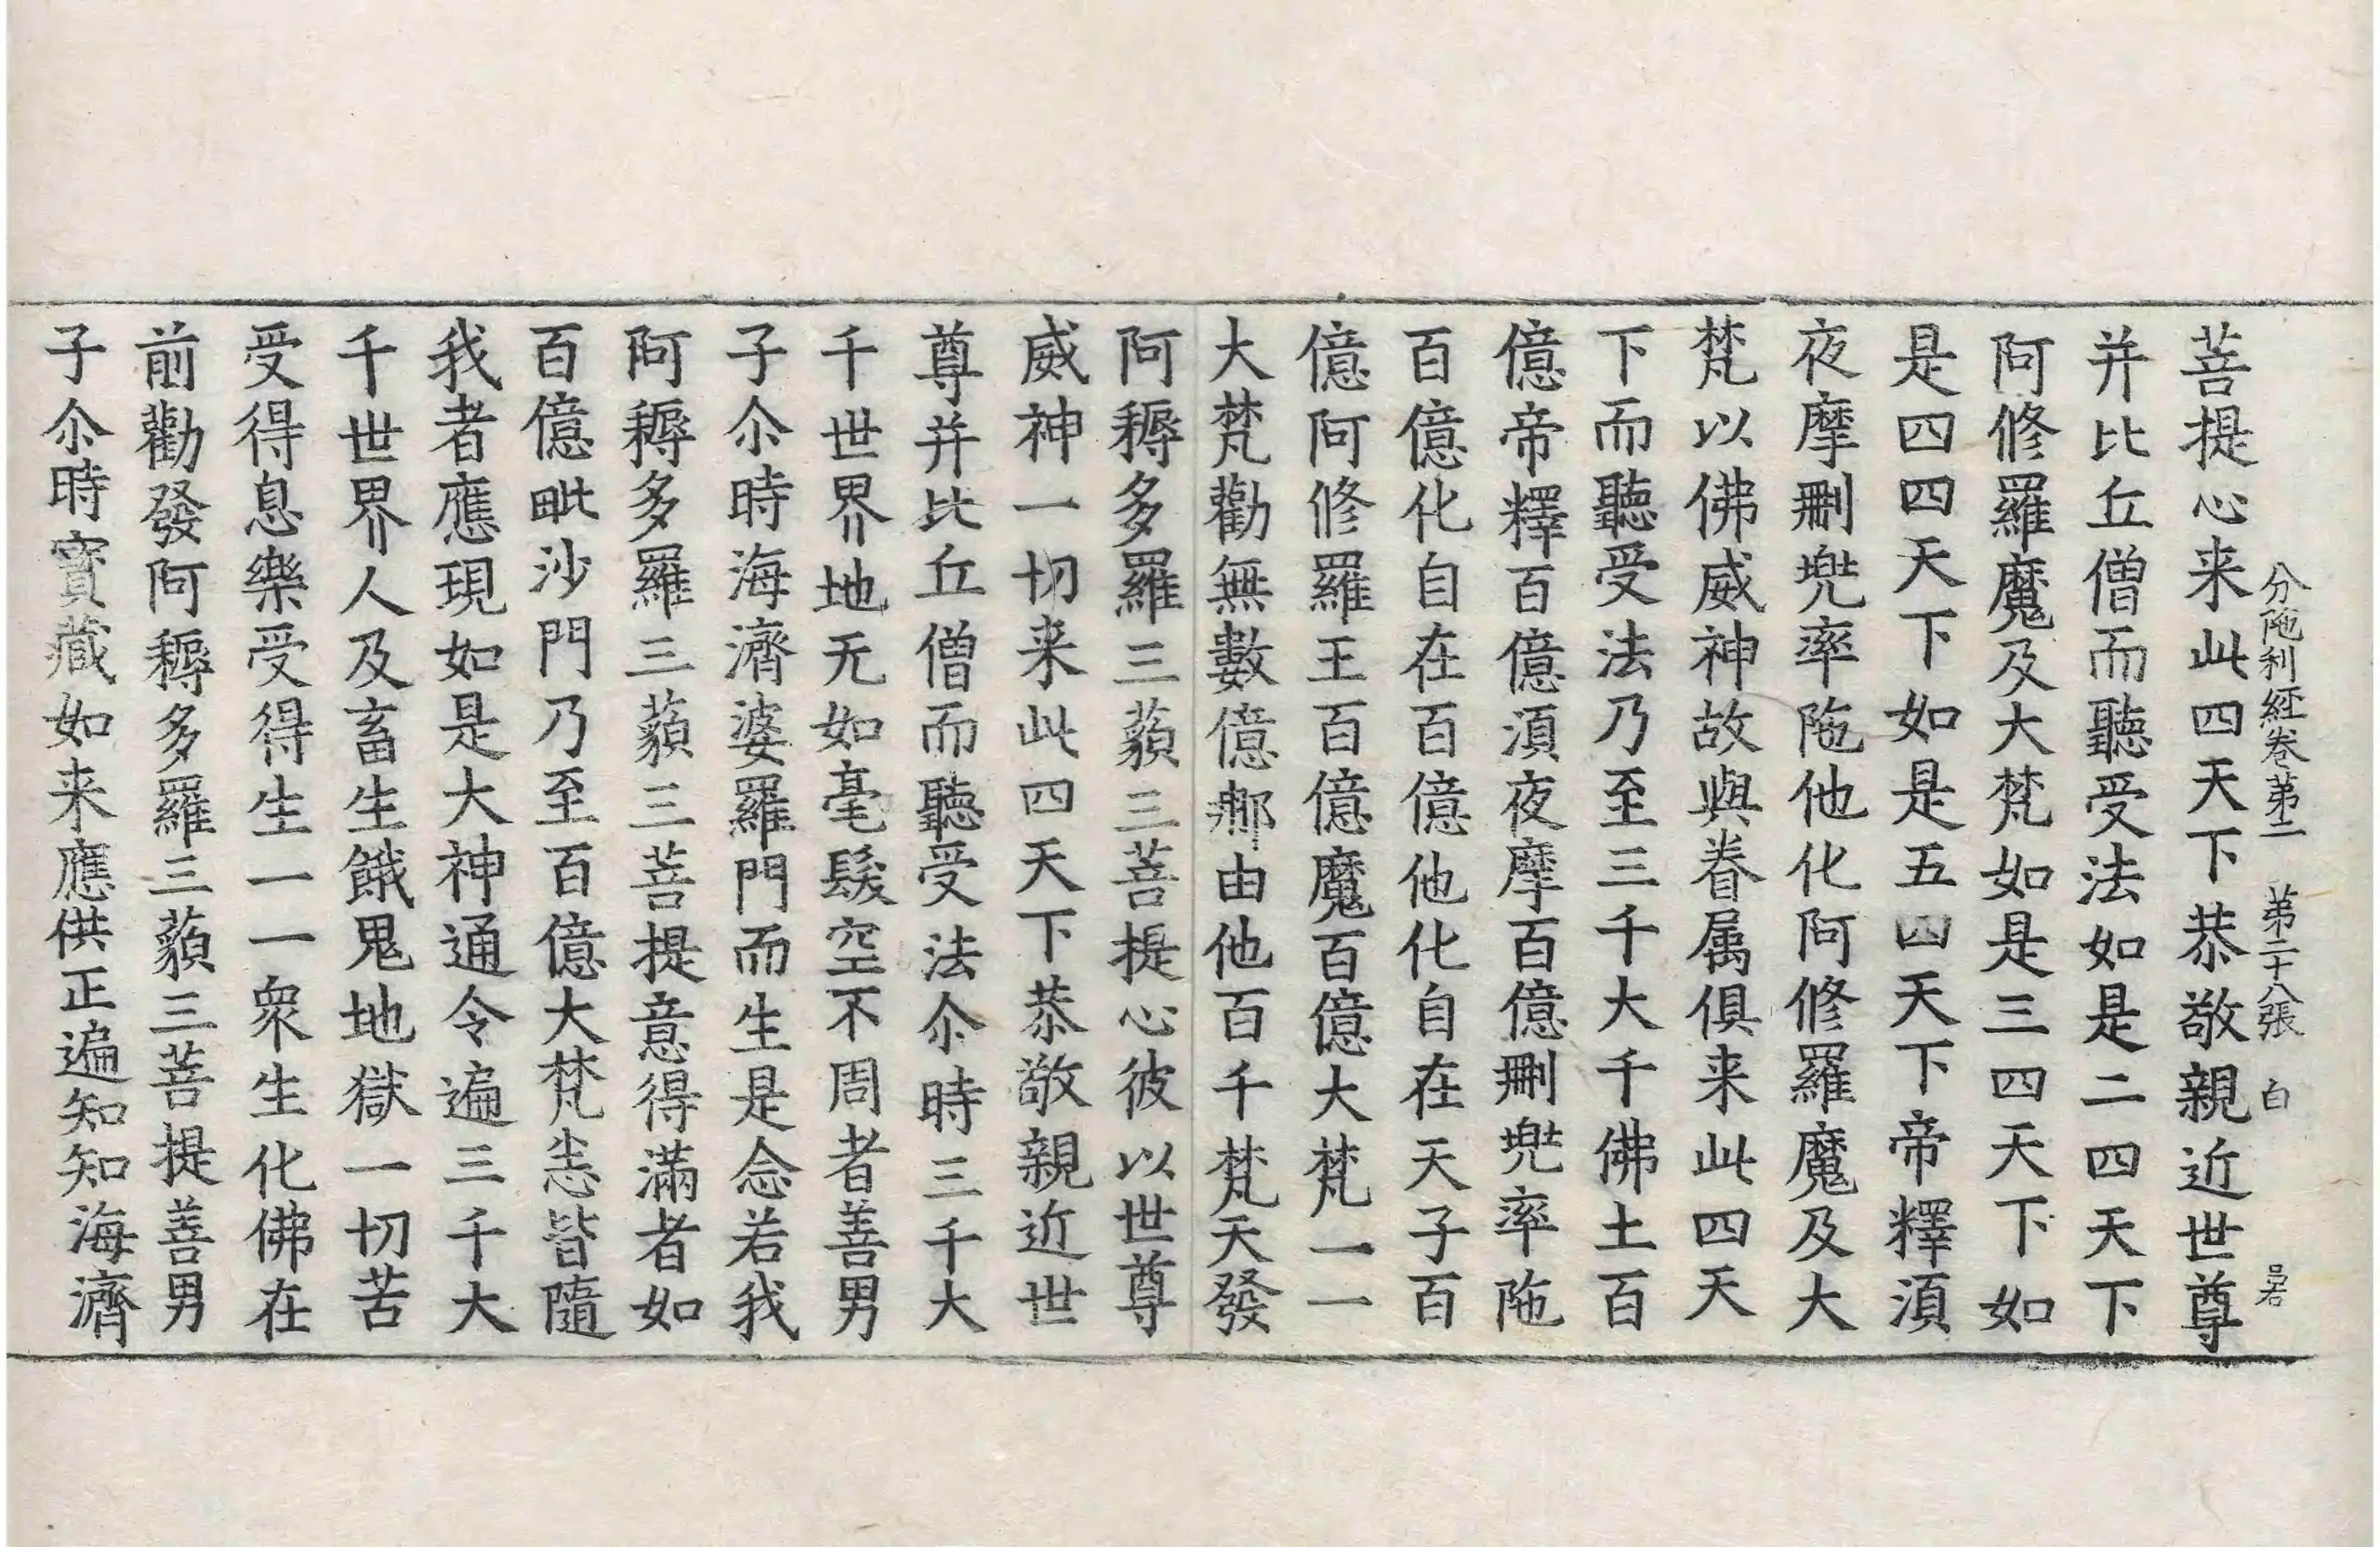 分陁利経卷第二　第二十八張　白
菩提心来此四天下恭敬親近世尊
并比丘僧而聽受法如是二四天下
阿修羅魔及大梵如是三四天下如
是四四天下如是五四天下帝釋湏
夜摩刪兠率陁他化阿修羅魔及大
梵以佛威神故與眷属俱来此四天
下而聽受法乃至三千大千佛土百
億帝釋百億湏夜摩百億刪兠率陁
百億化自在百億他化自在天子百
億阿修羅王百億魔百億大梵一一
大梵勸無數億那由他百千梵天發
阿耨多羅三藐三菩提心彼以世尊
威神一切来此四天下恭敬親近世
尊并比丘僧而聽受法尒時三千大
千世界地无如毫髮空不周者善男
子尒時海濟婆羅門而生是念若我
阿耨多羅三藐三菩提意得滿者如
百億毗沙門乃至百億大梵悉皆隨
我者應現如是大神通令遍三千大
千世界人及畜生餓鬼地獄一切苦
受得息樂受得生一一衆生化佛在
前勸發阿耨多羅三藐三菩提善男
子尒時寳藏如来應供正遍知知海濟